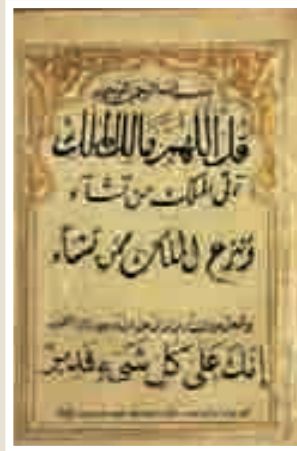 بسم الله الرحمن الرحيم
قل اللهم مالك الملك
تؤتي الملك من تشاء
وتنزع الملك ممن تشاء
إنك على كل شيء قدير